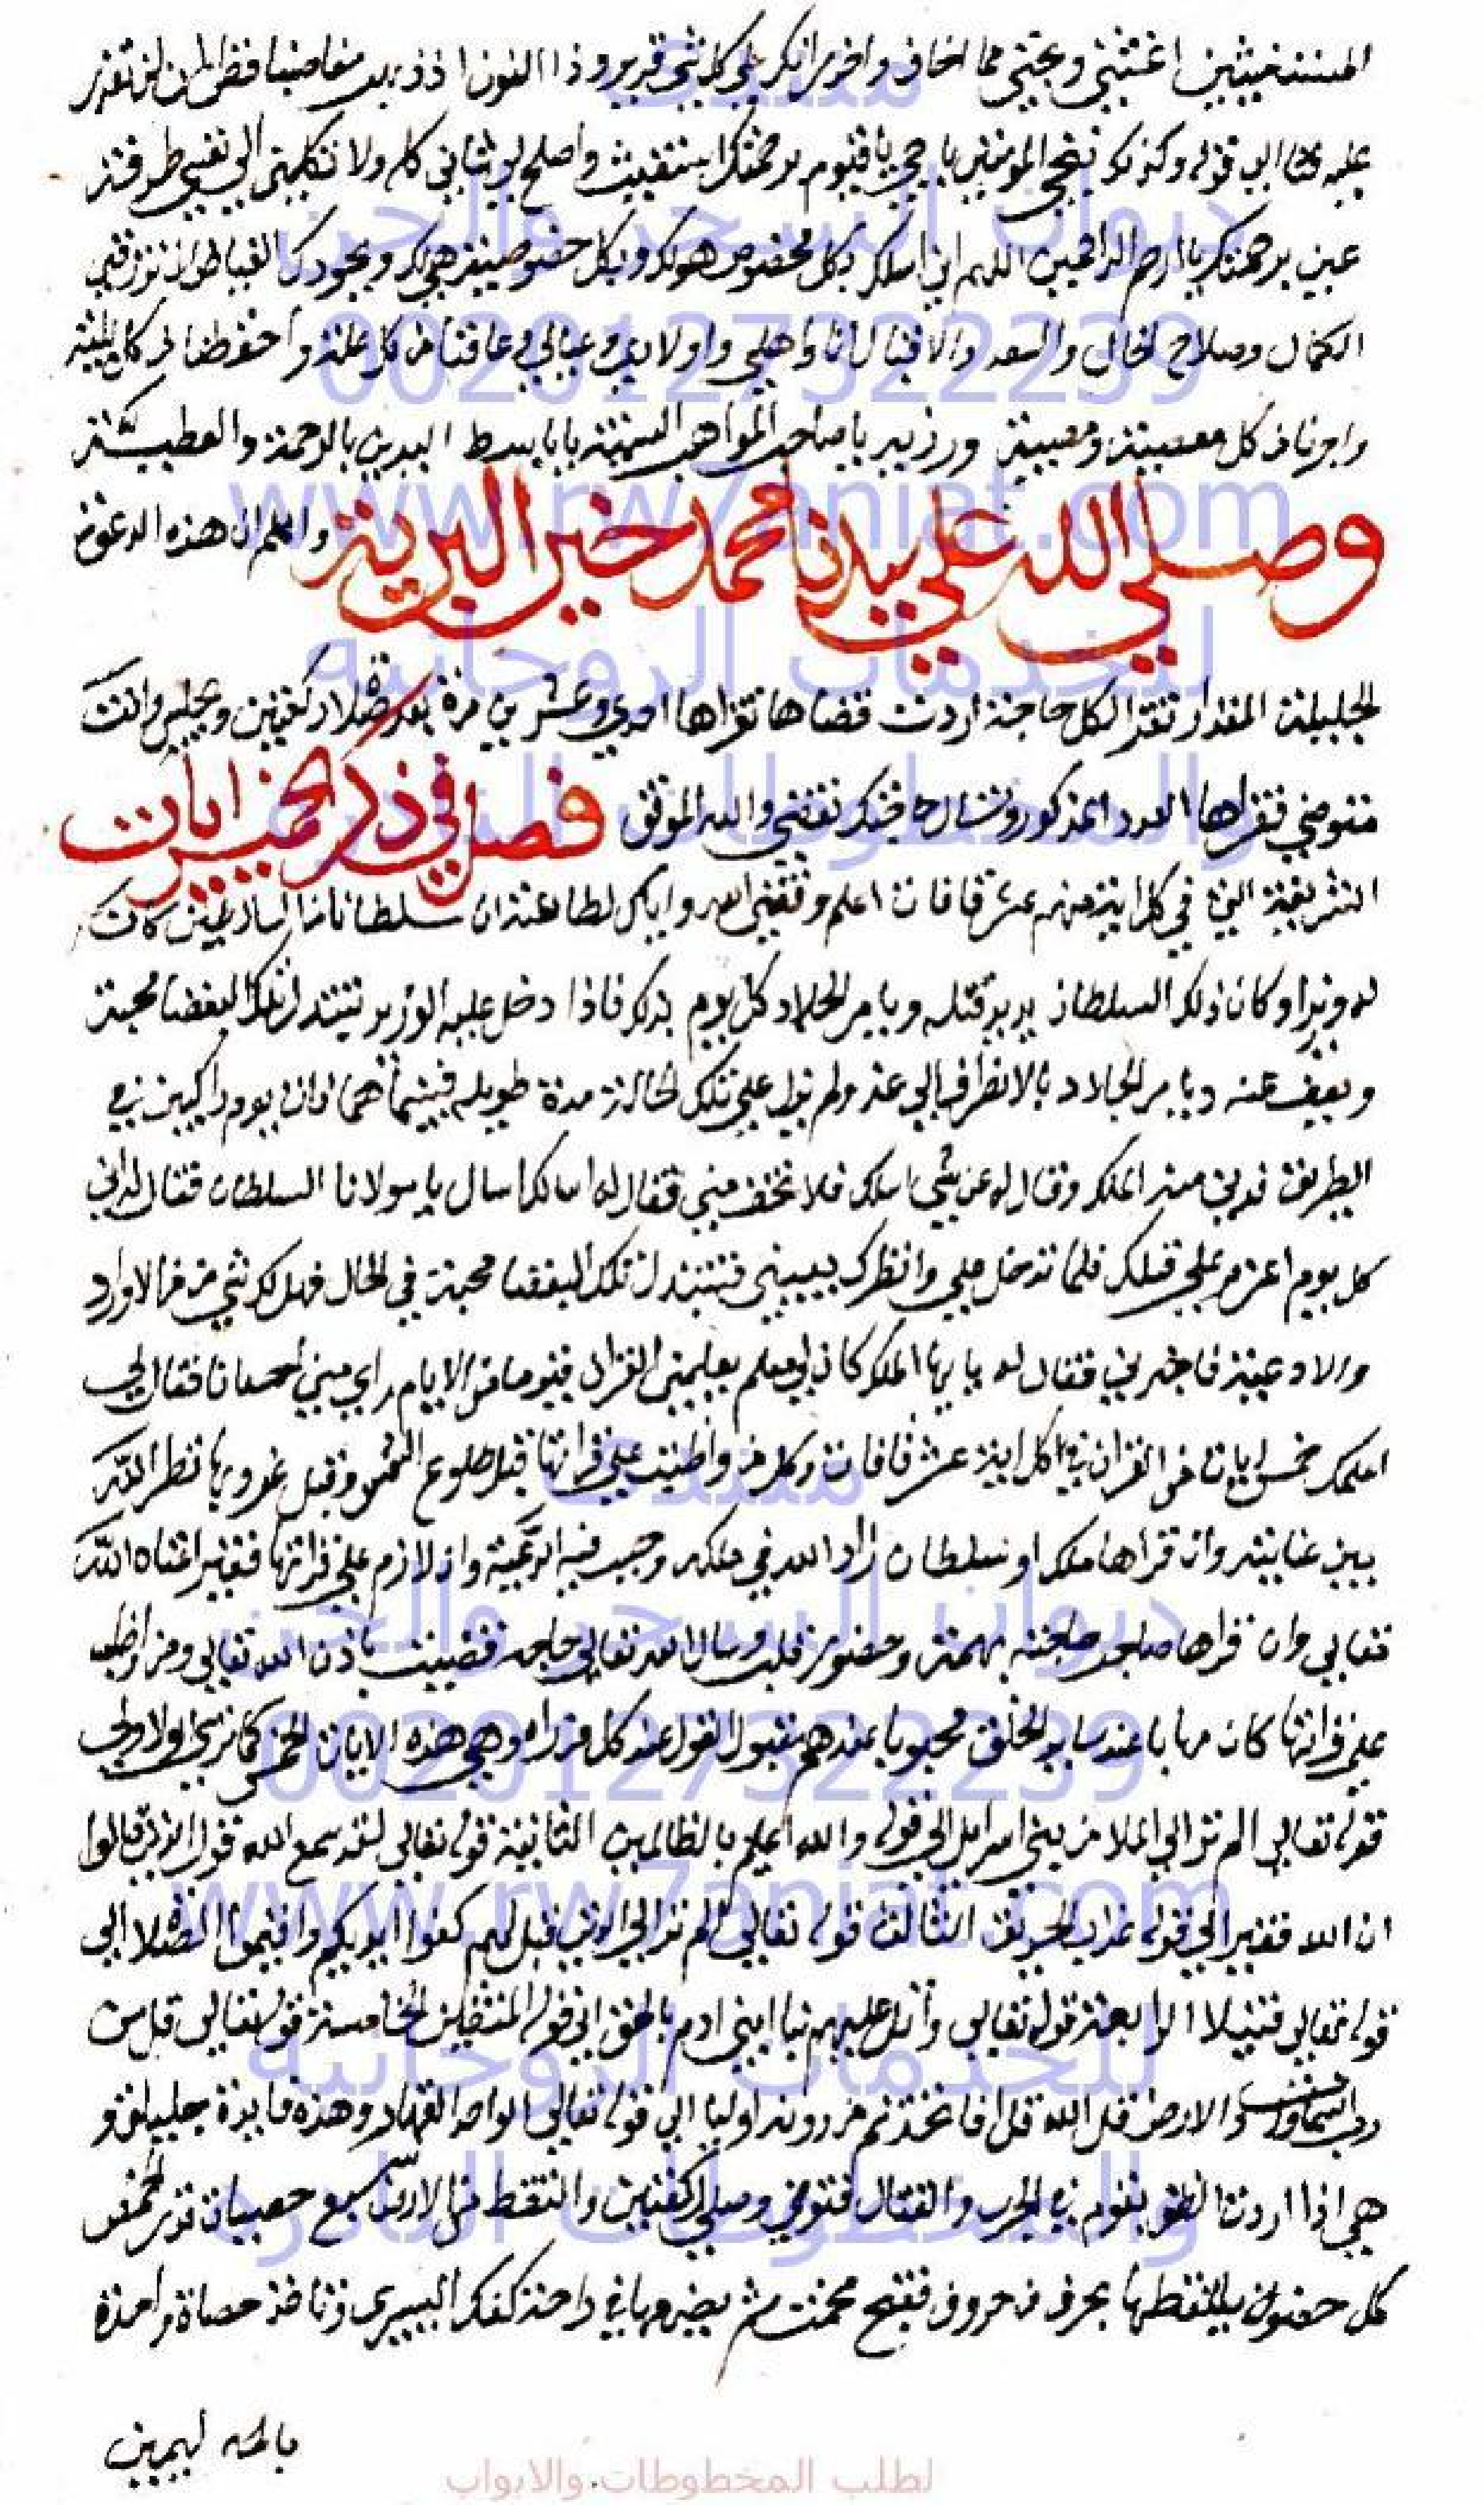 المستغيثين اغثني ونجني مما اخاف واحذر انك على كل شي قدير وذا النون اذ ذهب مغاضبا فظن ان لن نقدر
عليه الى قوله وكذلك ننجي المومنين يا حي يا قيوم برحمتك استغيث واصلح لي شاني كله ولا تكلني الى نفسي طرفة
عين برحمتك يا ارحم الراحمين اللهم اني اسلك بكل مخصوص هولك وبكل خصوصيته هي لك وبجودك الفياض ان ترزقني
الكمال وصلاح الحال والسعد والاقبال انا واهلي واولادي وعيالي وعافنا من كل علة واحفظنا من كل بلية
واجرنا من كل معصية ومصيبة ورزية يا صاحب المواهب السنية يا باسط اليدين بالرحمة والعطية
وصلي الله علي سيدنا محمد خير البرية واعلم ان هذه الدعوة
الجليلة المقدار تقرا لكل حاجة اردت قضاها تقراها احدي وعشرين مرة بعد صلاة ركعتين وتجلس وانت
متوضي فتقراها العدد المذكور وتسال حاجتك تقضي والله الموفق فصل في ذكر الخمس ايات
الشريفة التي في كل اية منهم عشر قافات اعلم وفقني الله واياك لطاعته ان سلطانا من السلاطين كانت
له وزيرا وكان ذلك السلطان يريد قتله ويامر الجلاد كل يوم بذلك فاذا دخل عليه الوزير تتبدل تلك البغضا محبة
ويعف عنه ويامر الجلاد بالانصراف الي عنه ولم يزل علي تلك الحالة مدة طويلة فبينما هما ذات يوم راكبين في
الطريق فدني منه الملك وقال له عن شي اسلك فلا تخف مني فقال له اسالك اسال يا مولانا السلطان فقال له اني
كل يوم اعزم علي قتلك فلما تدخل علي وانظرك بعيني فتتبدل تلك البغضا محبة في الحال فهل لك شي من الاوراد
والادعية فاخبرني فقال له يا ايها الملك كان لي معلم يعلمني القران فيوما من الايام راي مني احسانا فقال لي
اعلمك خمس ايات من القران في كل اية عشر قافات وكل من واظبت علي قراتها قبل طلوع الشمس وقبل غروبها نظر الله
بعين عنايته وان قراها ملك او سلطان زاد الله في ملكه وحبب فيه الرعية وان لازم علي قراتها فقير اغناه الله
تعالي وان قراها صاحب حاجة بهمة وحضور قلب وسال الله تعالي حاجة قضيت باذن الله تعالي ومن واظب
علي قراتها كان مهابا عند ساير الخلق محبوبا عندهم مقبول القول عند كل من راه وهي هذه الايات الخمس كما تري الاولي
قوله تعالي الم تر الي الملا من بني اسرايل الي قوله والله اعلم بالظالمين الثانية قوله تعالي لقد سمع الله قول الذين قالوا
ان الله فقير الي قوله عذاب الحريق الثالثة قوله تعالي الم تر الي الذين قيل لهم كفوا ايديكم واقيموا الصلاة الي
قوله تعالي فتيلا الرابعة قوله تعالي واتل عليهم نبا ابني ادم بالحق الي قوله المتقين الخامسة قوله تعالي قل من
رب السماوات والارض قل الله قل افاتخذتم من دونه اوليا الي قوله تعالي الواحد القهار وهذه فايدة جليلة و
هي اذا اردت الظفر بقوم في الحرب والقتال فتوضي وصلي ركعتين والتقط من الارض سبع حصيات قدر الحمص
كل حصوة يلتقطها بحرف من حروف فقج مخمت ثم يضعها في راحة كفك اليسري وتاخذ حصاة واحدة
باليد اليمين
منتدى
ديوان السحر والجن
0020127322239
www.rw7aniat.com
للخدمات الروحانيه
والمخطوطات النادره
منتدى
ديوان السحر والجن
0020127322239
www.rw7aniat.com
للخدمات الروحانيه
والمخطوطات النادره
لطلب المخطوطات والابواب